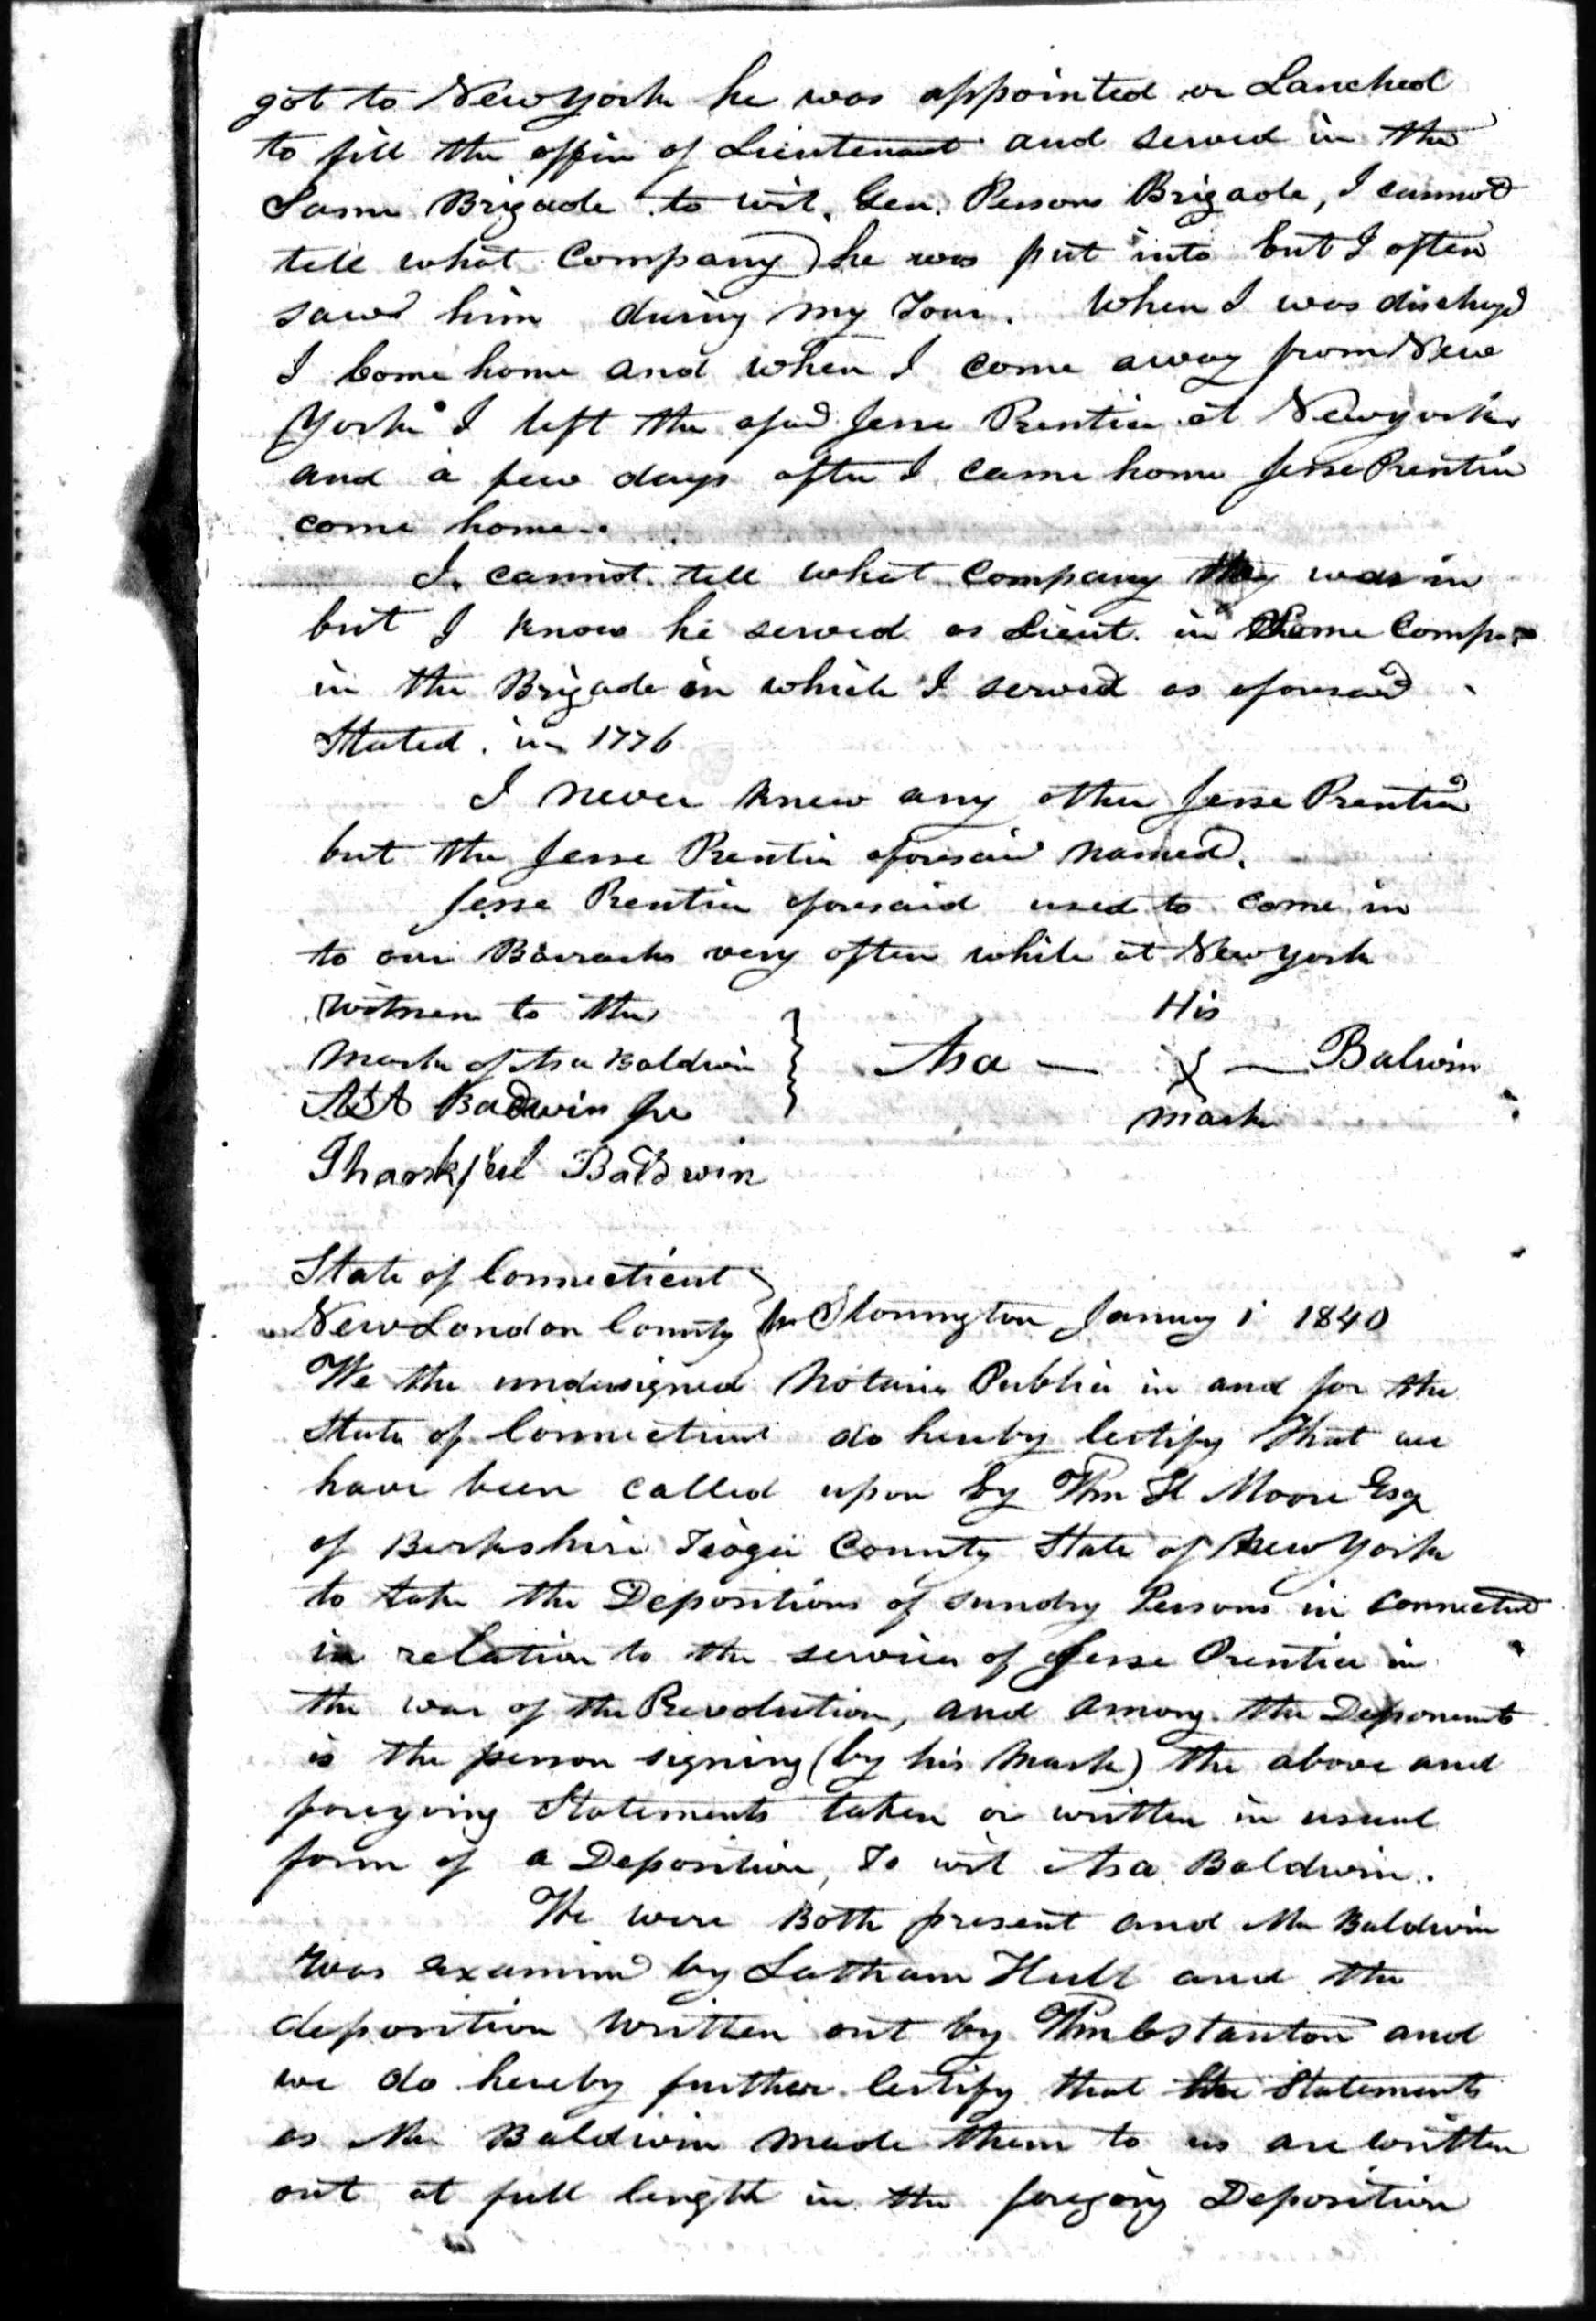 got to New York he was appointed or Lanched
to fill the offic of Lieutenant and served in the
Same Brigade to wit, Gen. Persons Brigade, I cannot
tell what Company he was put into but I often
saw him during my Tour. When I was dischgd
I come home and when I come away from New
York I left the afsd Jesse Prentice at New york
and a few days after I came home Jesse Prentice
come home.
I cannot tell what Company they was in
but I know he served as Lieut. in Some Comp.
in the Brigade in which I served as aforesaid
Stated. in 1776
I never knew any other Jesse Prentice
but the Jesse Prentice aforesaid named.
Jesse Prentice aforesaid used to come in
to our Barracks very often while at New York
Witness to the
Mark of Asa Baldwin
ASA Badwin Jr
Thankful Baldwin
His
Asa — X — Balwin
mark
State of Connecticut
New London County Stonington January 1 1840
We the undersigned Notaries Public in and for the
State of Connecticut do hereby Certify that we
have been called upon by Wm H Moore Esq
of Berkshire Tioga County State of New York
to take the Depositions of sundry Persons in Connecticut
in relation to the service of Jesse Prentice in
the war of the Revolution, and among the Deponents
is the person signing (by his Mark) the above and
foregoing Statements taken or written in usual
form of a Deposition, To wit Asa Baldwin.
We were Both present and Mr Baldwin
was examined by Latham Hull and the
deposition written out by Wm C Stanton and
we do hereby further Certify that the Statements
as Mr Baldwin made them to us are written
out at full length in the foregoing Deposition